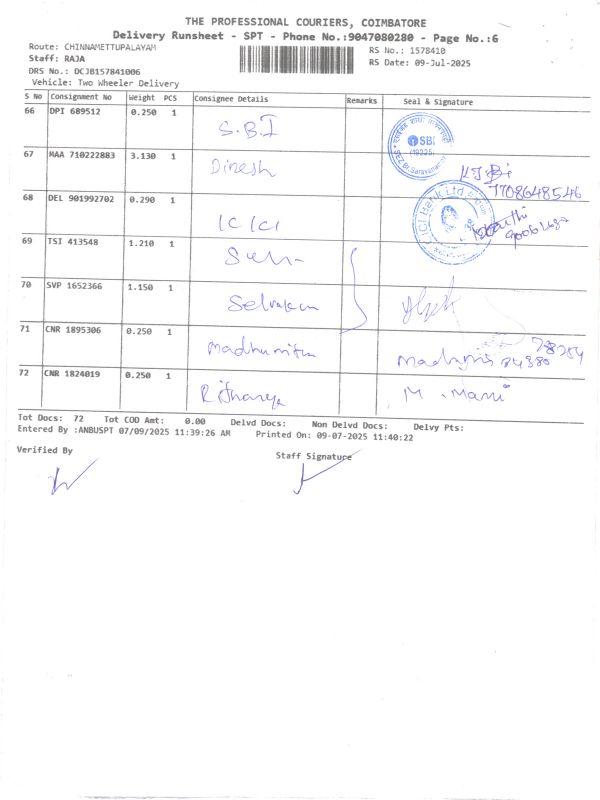 THE PROFESSIONAL COURIERS, COIMBATORE
Delivery Runsheet - SPT - Phone No.:9047080280 - Page No.:6
Route: CHINNAMETTUPALAYAM
RS No.: 1578410
Staff: RAJA
RS Date: 09-Jul-2025
DRS No.: DCJB157841006
Vehicle: Two Wheeler Delivery
S No Consignment No Weight PCS Consignee Details Remarks Seal & Signature
66 DPI 689512 0.250 1 S.B.I SBI
67 MAA 710222883 3.130 1 Dinesh
7708648546
68 DEL 901992702 0.290 1 ICICI ICICI Bank Ltd
69 TSI 413548 1.210 1
70 SVP 1652366 1.150 1
71 CNR 1895306 0.250 1 Madhumitha
72 CNR 1824019 0.250 1 Rithanya M. Mani
Tot Docs: 72 Tot COD Amt: 0.00 Delvd Docs: Non Delvd Docs: Delvy Pts:
Entered By :ANBUSPT 07/09/2025 11:39:26 AM Printed On: 09-07-2025 11:40:22
Verified By
Staff Signature